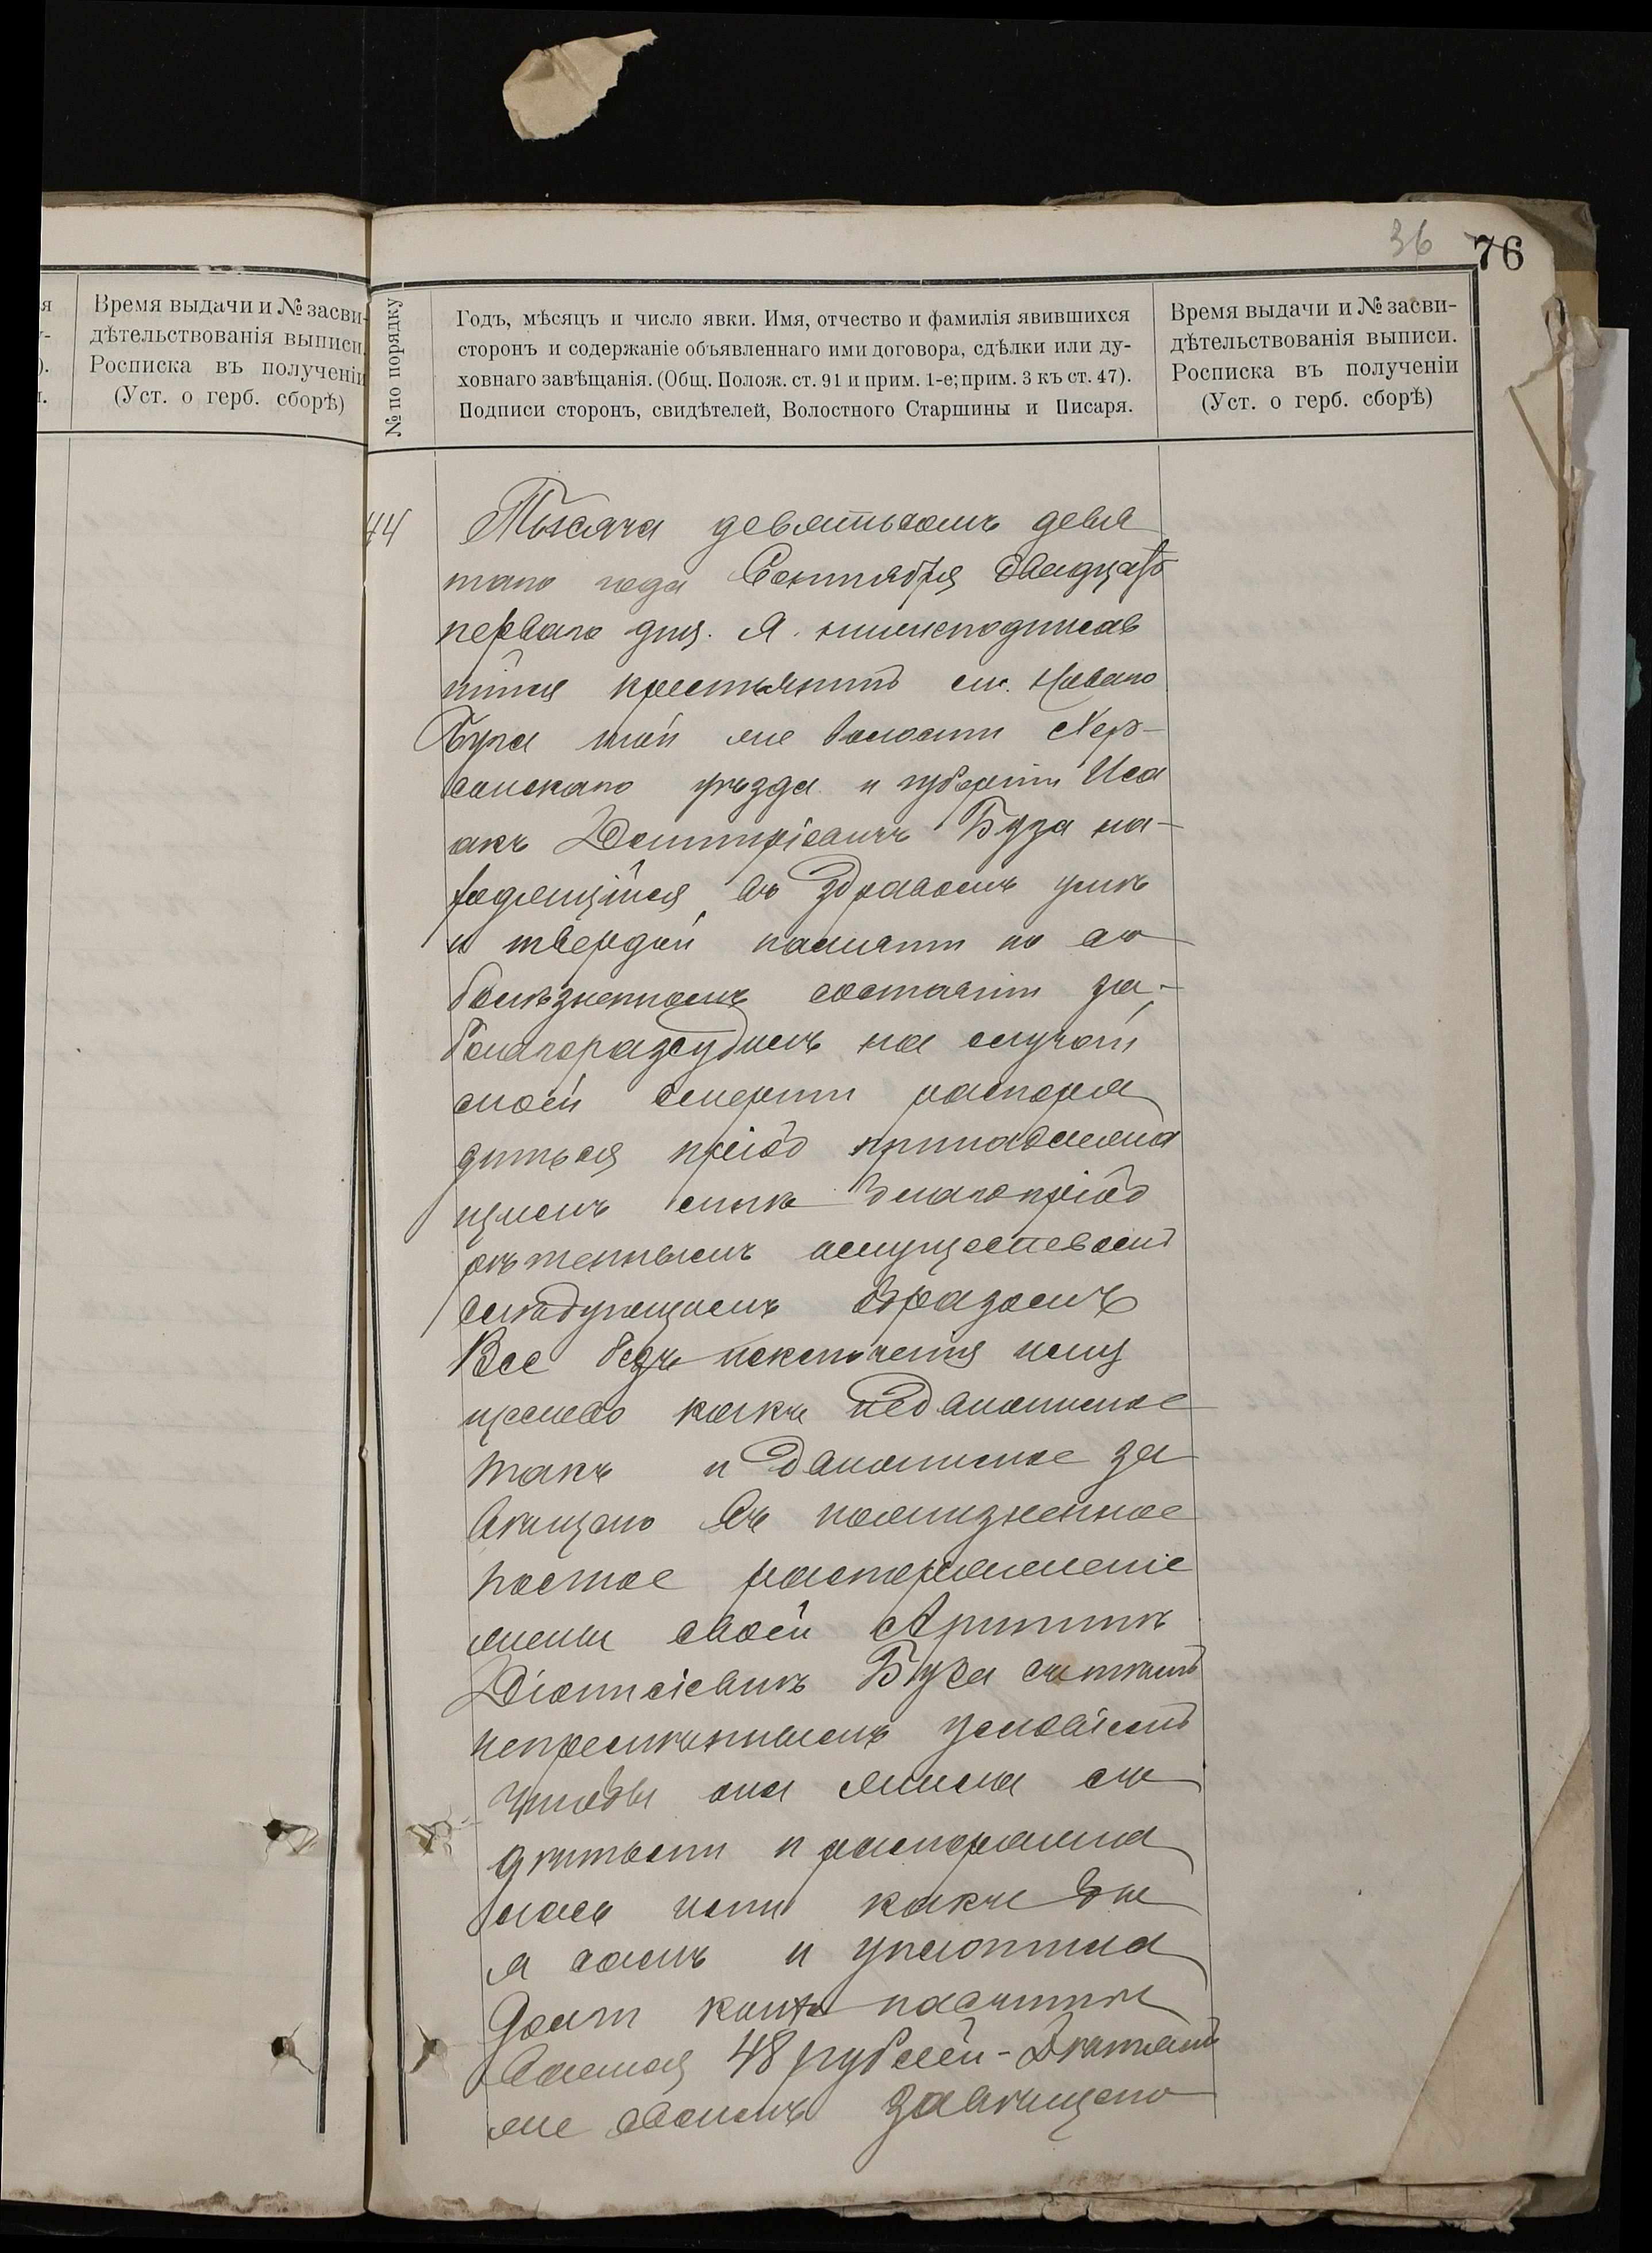 36 76
я
у-
).
ы.
Время выдачи и № засви-
дѣтельствованія выписи.
Росписка въ полученіи
(Уст. о герб. сборѣ)
№ по порядку
Годъ, мѣсяцъ и число явки. Имя, отчество и фамилія явившихся
сторонъ и содержаніе объявленнаго ими договора, сдѣлки или ду-
ховнаго завѣщанія. (Общ. Полож. ст. 91 и прим. 1-е; прим. 3 къ ст. 47).
Подписи сторонъ, свидѣтелей, Волостного Старшины и Писаря.
Время выдачи и № засви-
дѣтельствованія выписи.
Росписка въ полученіи
(Уст. о герб. сборѣ)
44
Тысяча девятьсомъ девя
таго года Сентября двадцать
перваго дня. Я нижеподписав
шійся крестьянинъ сл. Новаго
Буга той же волости Хер-
сонскаго уѣзда и губерніи Иса
акъ Дмитріевичъ Буза на-
ходящійся въ здравомъ умѣ
и твердой памяти но въ
болѣзненномъ состояніи за-
благоразсудилъ на случай
моей смерти распоря
диться пріоб принадлежа
щимъ мнѣ благопріоб
рѣтеннымъ имуществомъ
слѣдующимъ образомъ
Все безъ исключенія иму
щество какъ недвижимое
такъ и движимое за
вѣщаю въ пожизненное
полное распоряженіе
жены своей
Діонисіевнѣ Буза съ тѣмъ
непремѣннымъ условіемъ
чтобы она жила съ
дѣтьми и распоряжа
лась ими какъ бы
я самъ и уплотила
долг
48 рублей - Дѣтямъ
же своимъ завѣщаю